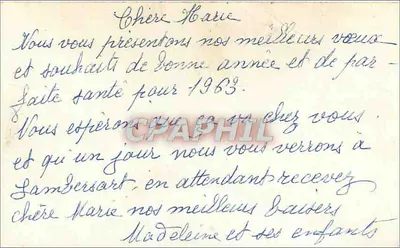 Chère Marie
Vous vous présentons nos meilleurs vœux
et souhaits de bonne année et de par-
faite santé pour 1963.
Vous espérons que ça va chez vous
et qu un jour nous vous verrons à
Lambersart, en attendant recevez
chère Marie nos meilleurs baisers
Madeleine et ses enfants
CPAPHIL